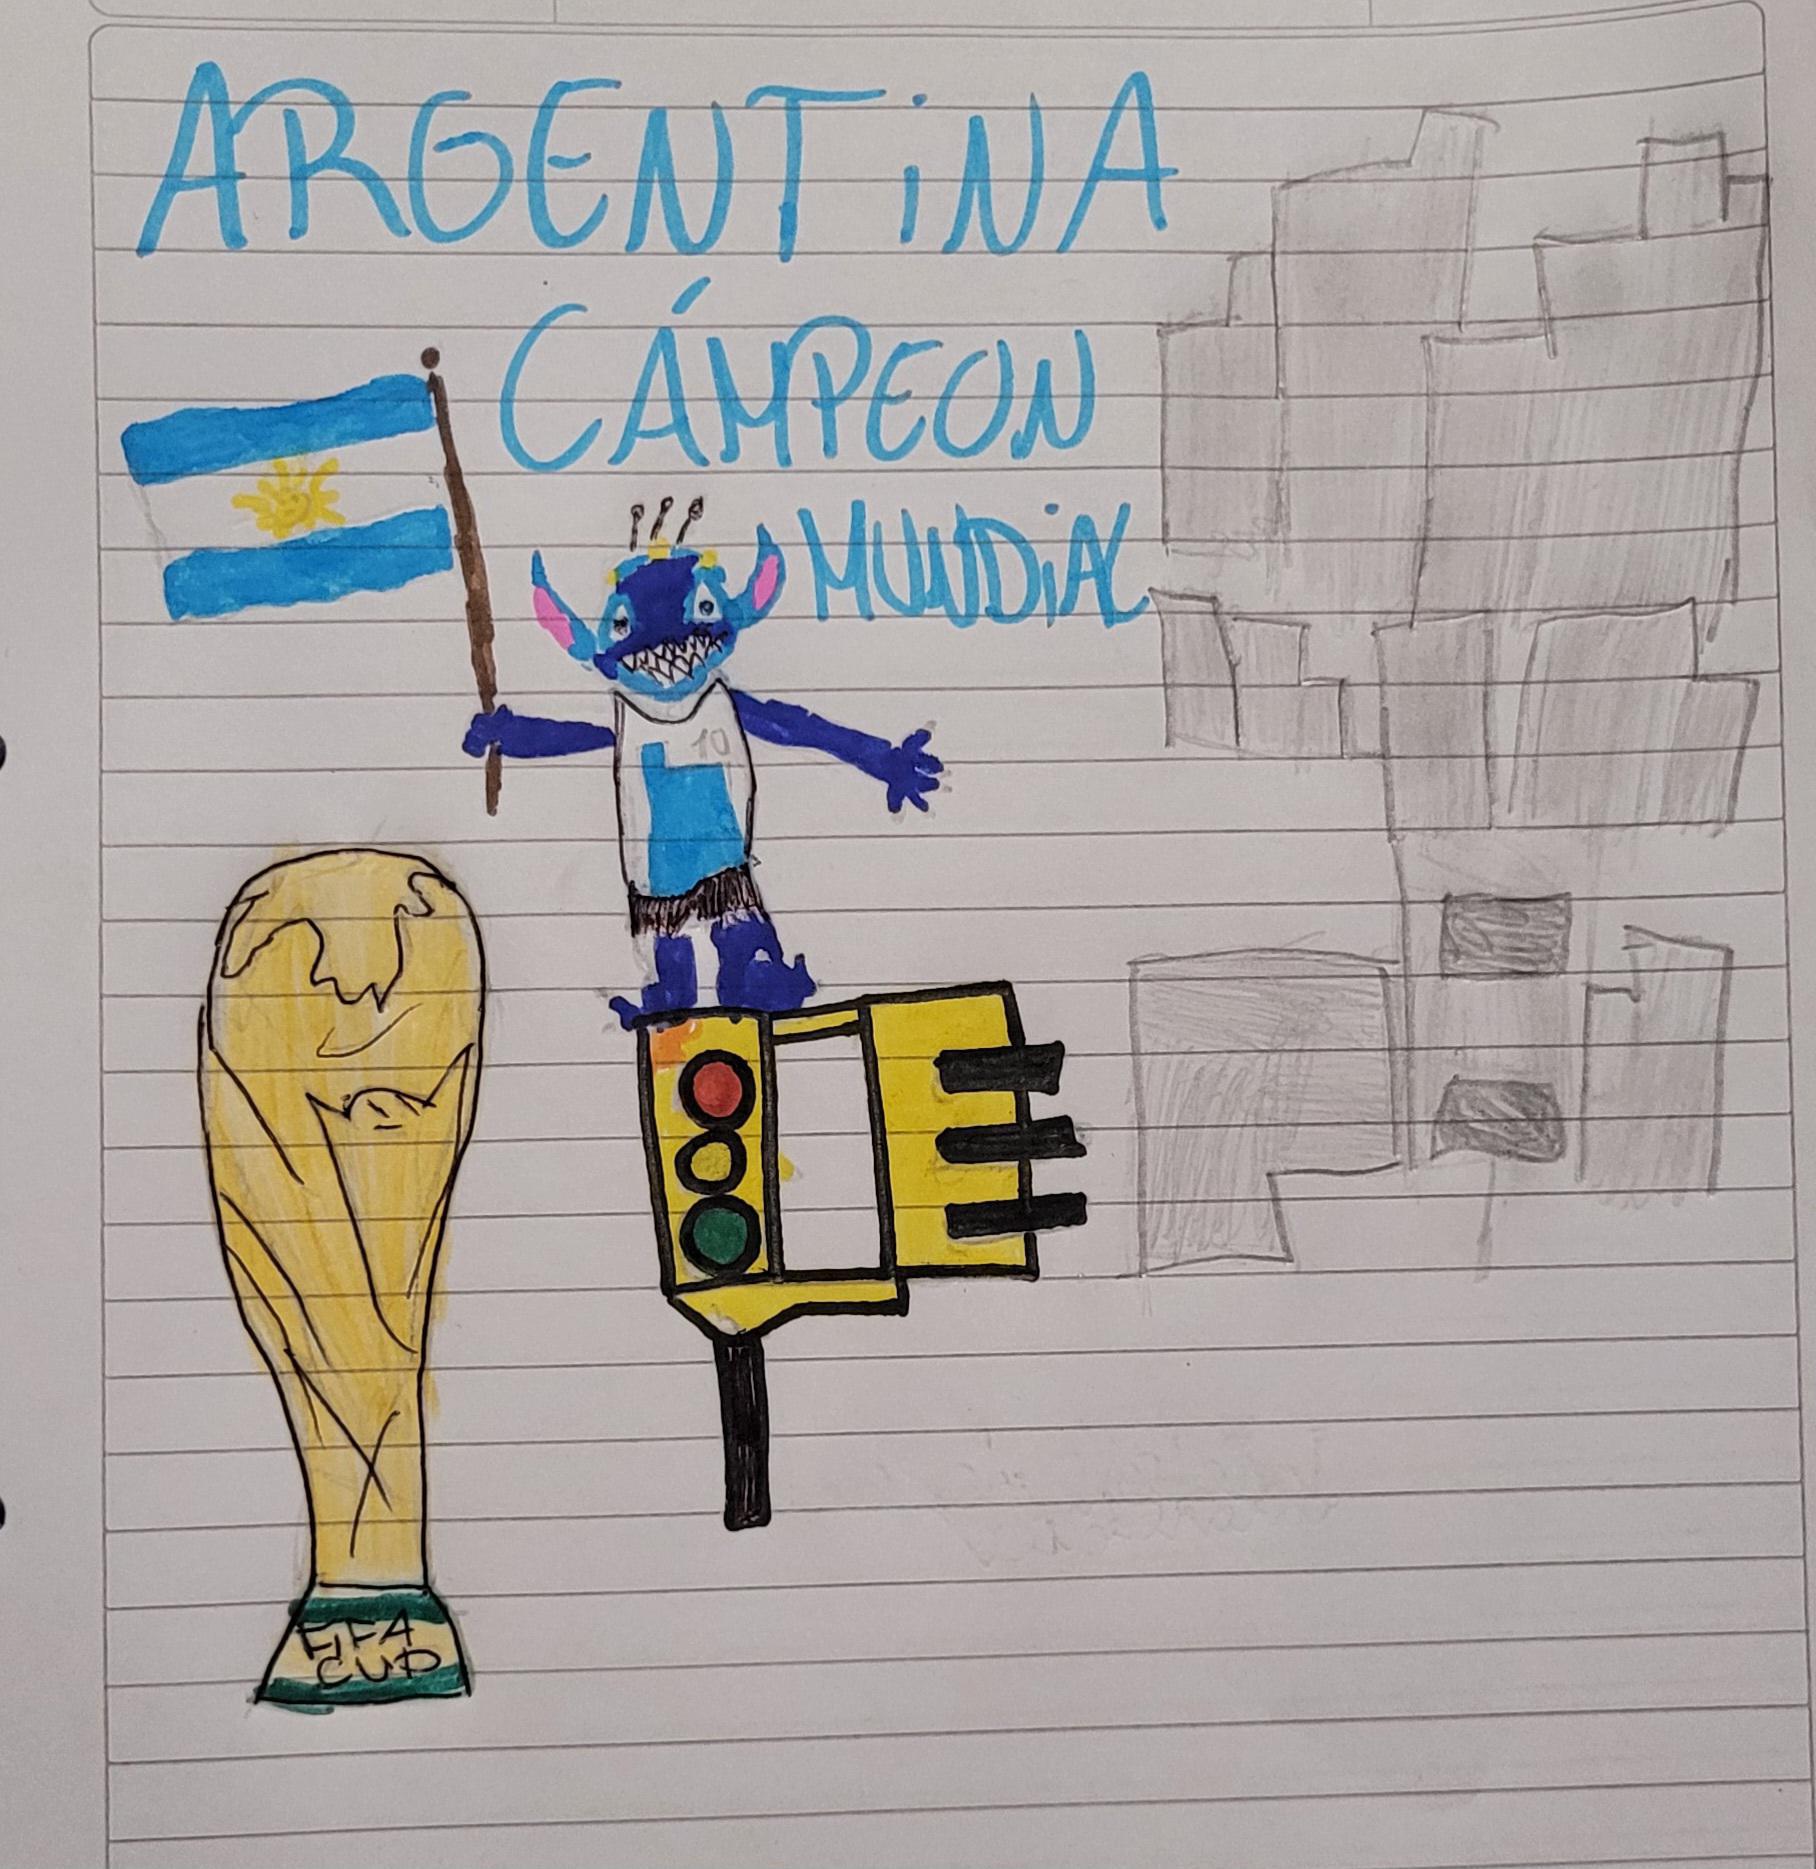 ARGENTiNA
CÁMPEON
MUNDiAL
10
FIFA
CUP